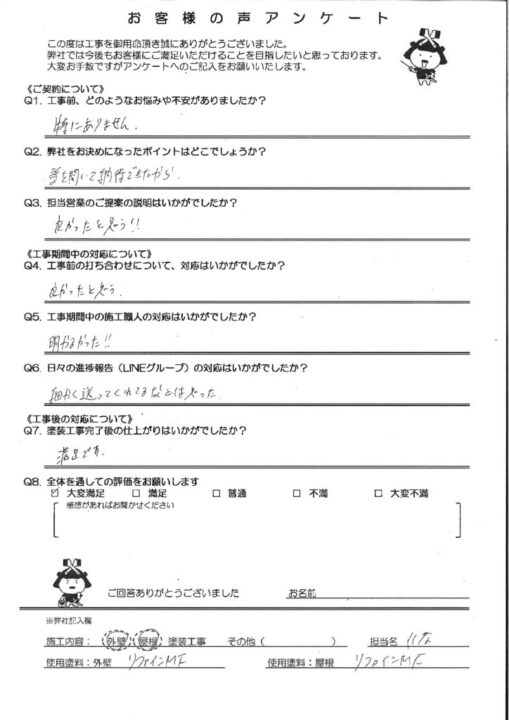 お客様の声アンケート
この度は工事を御用命頂き誠にありがとうございました。
弊社では今後もお客様にご満足いただけることを目指したいと思っております。
大変お手数ですがアンケートへのご記入をお願いいたします。
《ご契約について》
Q1. 工事前、どのようなお悩みや不安がありましたか?
特にありません.
Q2. 弊社をお決めになったポイントはどこでしょうか?
を聞いて納得できたから.
Q3. 担当営業のご提案の説明はいかがでしたか?
良かったと思う!!
《工事期間中の対応について》
Q4. 工事前の打ち合わせについて、対応はいかがでしたか?
良かったと思う.
Q5. 工事期間中の施工職人の対応はいかがでしたか?
明かるかった!!
Q6. 日々の進捗報告(LINEグループ)の対応はいかがでしたか?
細かく送ってくれてるなとは思った.
《工事後の対応について》
Q7. 塗装工事完了後の仕上がりはいかがでしたか?
満足です.
Q8. 全体を通しての評価をお願いします
☑ 大変満足 □ 満足 □ 普通 □ 不満 □ 大変不満
感想があればお聞かせください
ご回答ありがとうございました お名前
※弊社記入欄
施工内容: 外壁・屋根 塗装工事 その他( ) 担当名
使用塗料:外壁 リファインMF 使用塗料:屋根 リファインMF